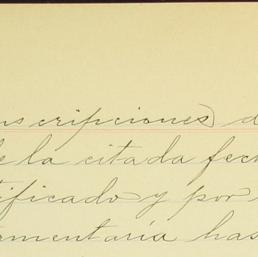 nscripciones d
e la citada fech
tificado y por
tamentaría has